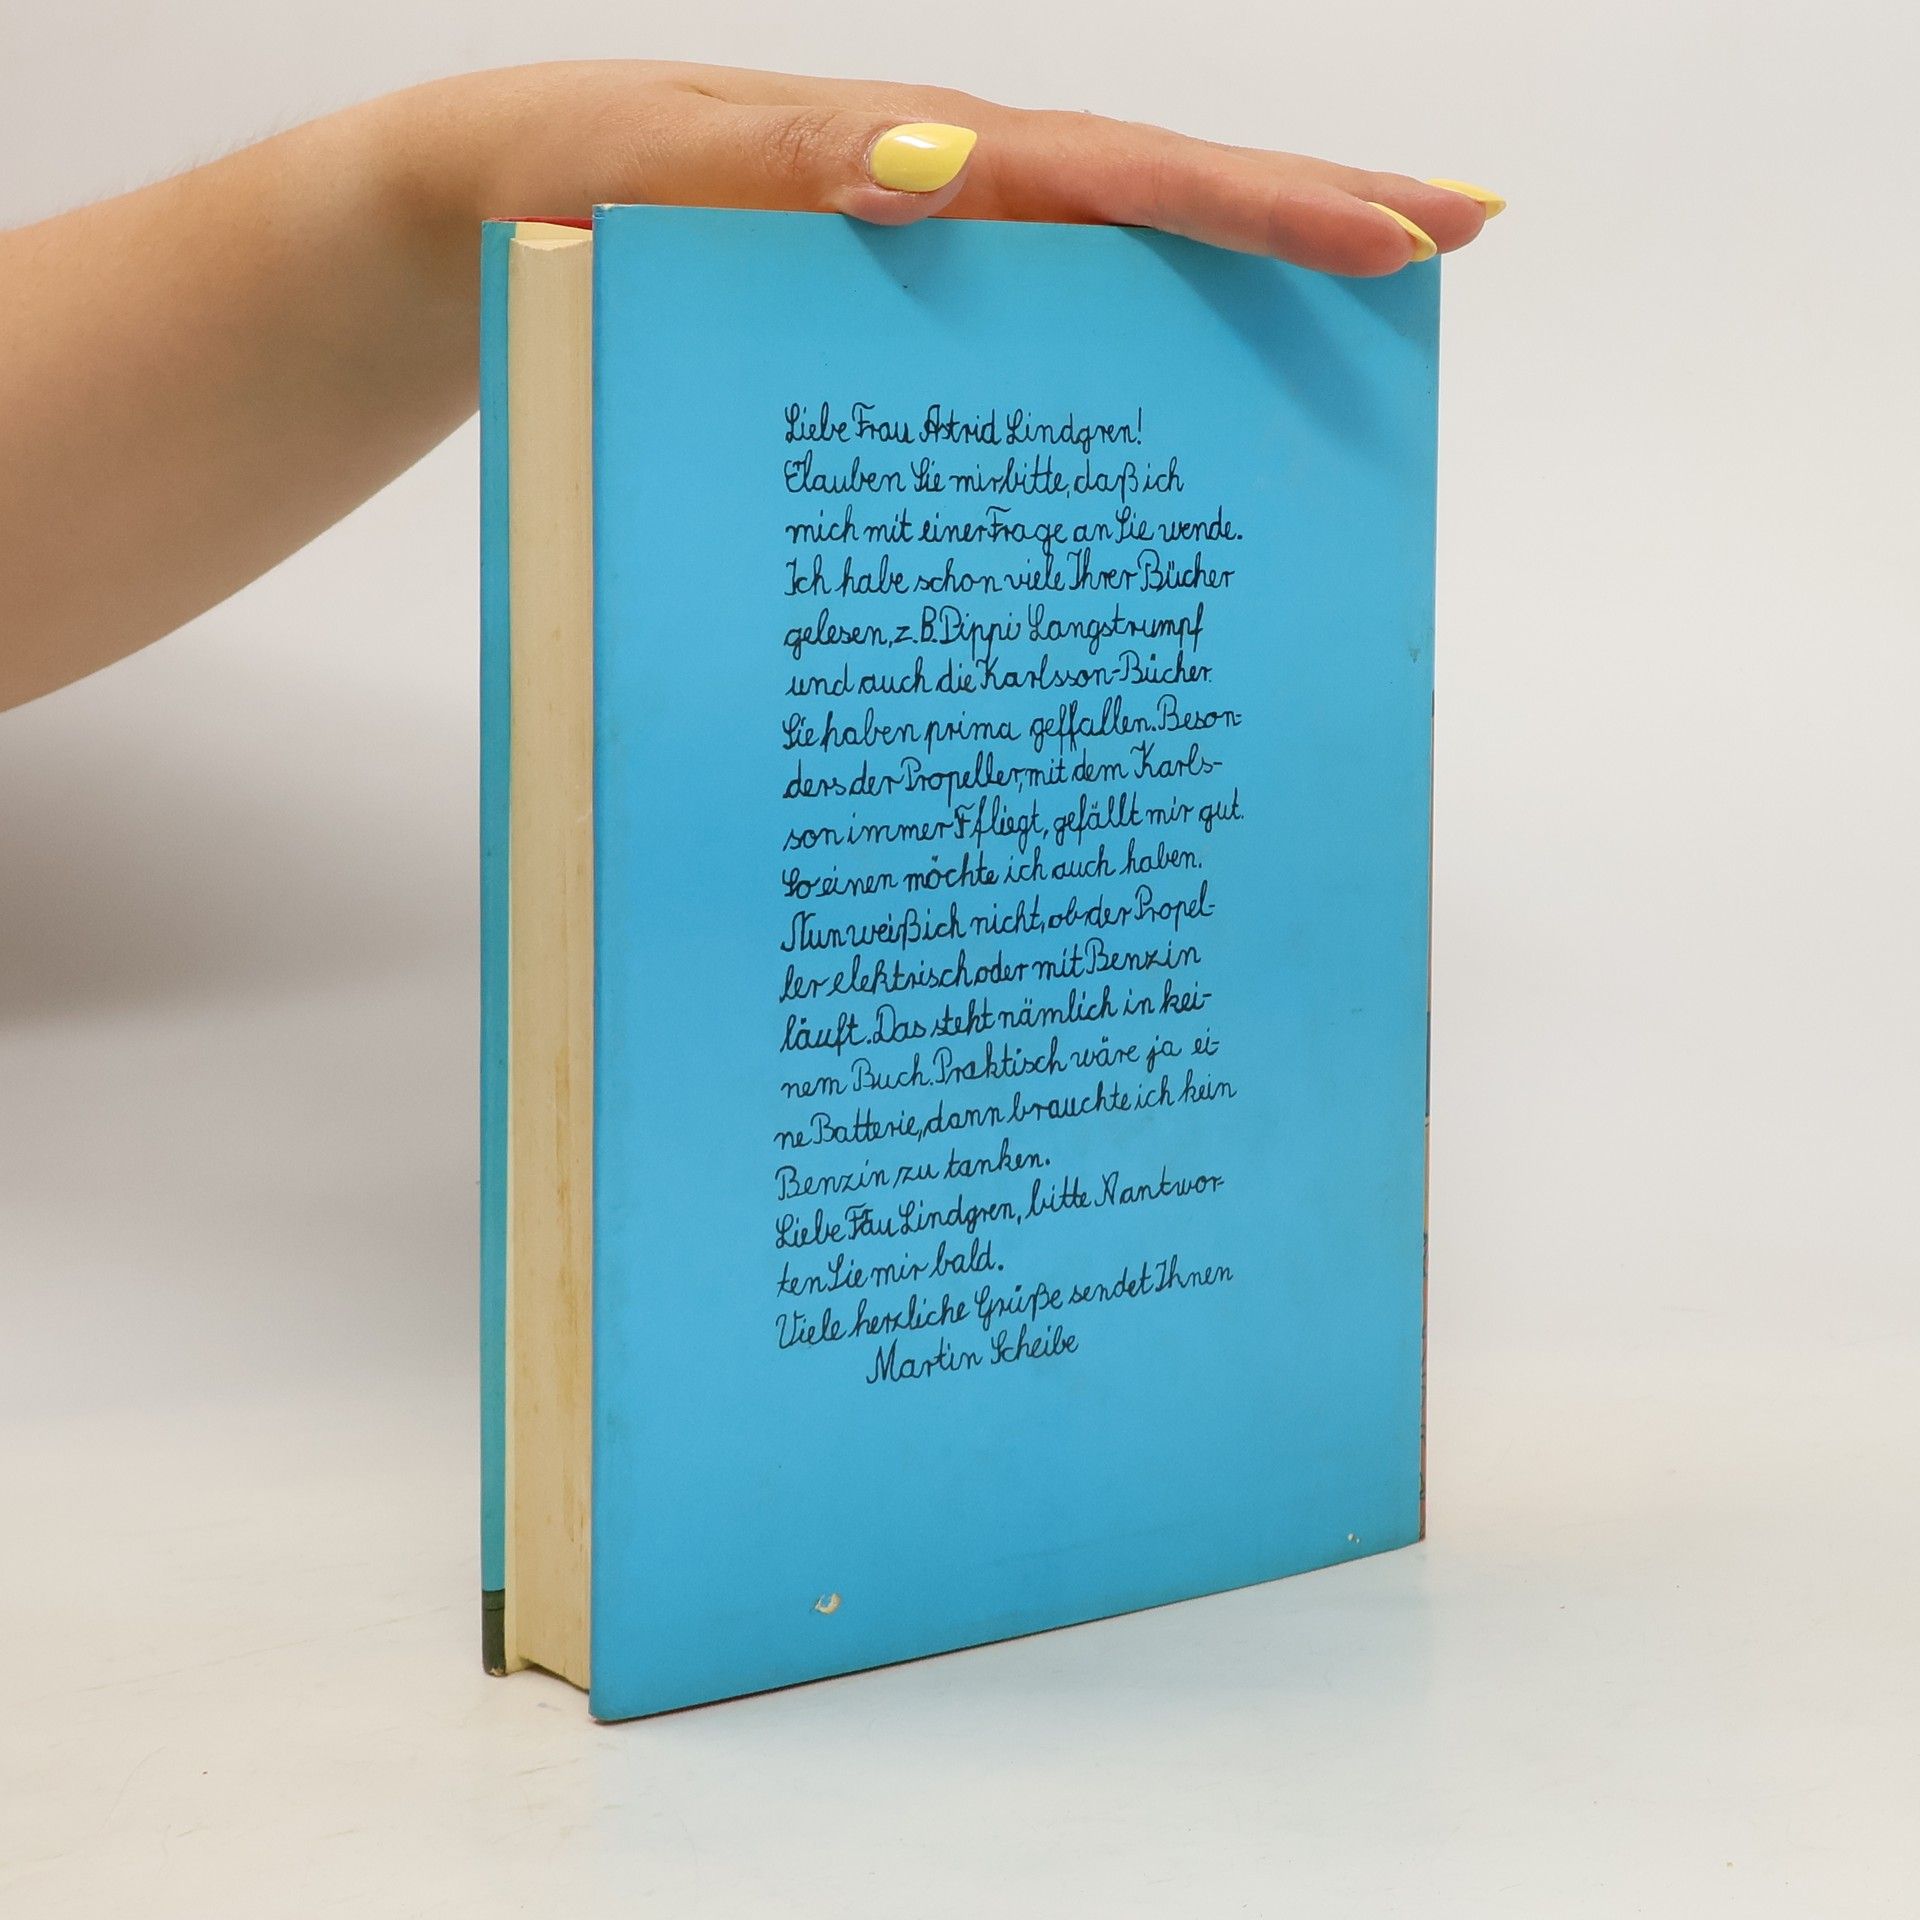 Liebe Frau Astrid Lindgren!
Glauben Sie mir bitte, daß ich
mich mit einer Frage an Sie wende.
Ich habe schon viele Ihrer Bücher
gelesen, z.B. Pippi Langstrumpf
und auch die Karlsson-Bücher.
Sie haben prima geffallen. Beson-
ders der Propeller, mit dem Karls-
son immer Ffliegt, gefällt mir gut.
So einen möchte ich auch haben.
Nun weiß ich nicht, ob der Propel-
ler elektrisch oder mit Benzin
läuft. Das steht nämlich in kei-
nem Buch. Praktisch wäre ja ei-
ne Batterie, dann brauchte ich kein
Benzin zu tanken.
Liebe Frau Lindgren, bitte Aantwor-
ten Sie mir bald.
Viele herzliche Grüße sendet Ihnen
Martin Scheibe